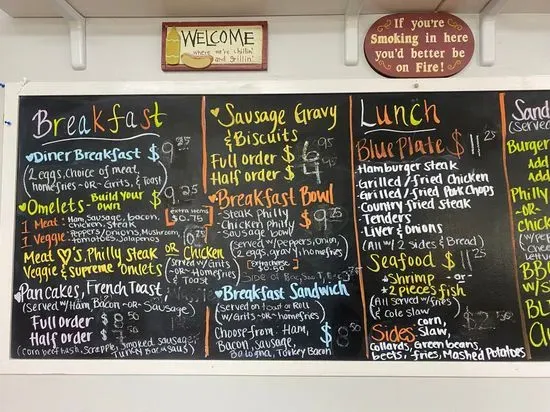 WELCOME
where we're chillin'
and grillin'
If you're
Smoking in here
you'd better be
on Fire!
Breakfast
Diner Breakfast $9.25
(2 eggs, choice of meat,
homefries -OR- Grits, & Toast)
Omelets - Build your own $9.25
1 Meat - Ham, Sausage, bacon, chicken, steak
1 Veggie - Peppers/onions, Mushroom, tomatoes, Jalapenos
extra items $0.75
Meat ♥'s, Philly steak
Veggie & Supreme omelets
OR Chicken
(served w/Grits
-OR- Homefries
& Toast
Pancakes, French Toast
(served w/Ham, Bacon -OR- Sausage)
Full order $8.50
Half order $
(corn beef hash, Scrapple, Smoked sausage,
Turkey Bac/Saus)
Sausage Gravy
& Biscuits
Full order $6
Half order $4.95
Breakfast Bowl
Steak Philly
Chicken Philly
Sausage Bowl
$9.25
(served w/peppers, onion,
2 eggs, gravy, homefries)
Breakfast Sandwich
(served on toast or Roll
w/Grits -OR- homefries)
Choose from: Ham,
Bacon, Sausage,
Bologna, Turkey Bacon
$8.50
Lunch
Blue Plate $11.25
Hamburger steak
Grilled/fried Chicken
Grilled/fried Pork Chops
Country fried steak
Tenders
Liver & onions
(All w/ 2 sides & Bread)
Seafood $11.25
Shrimp -or-
2 piece's fish
(All served w/fries
& Cole Slaw
Sides: corn, Slaw, $2.50
Collards, Green beans,
beets, fries, Mashed Potatoes
Sand
(Served
Burger
Add
Add
Philly